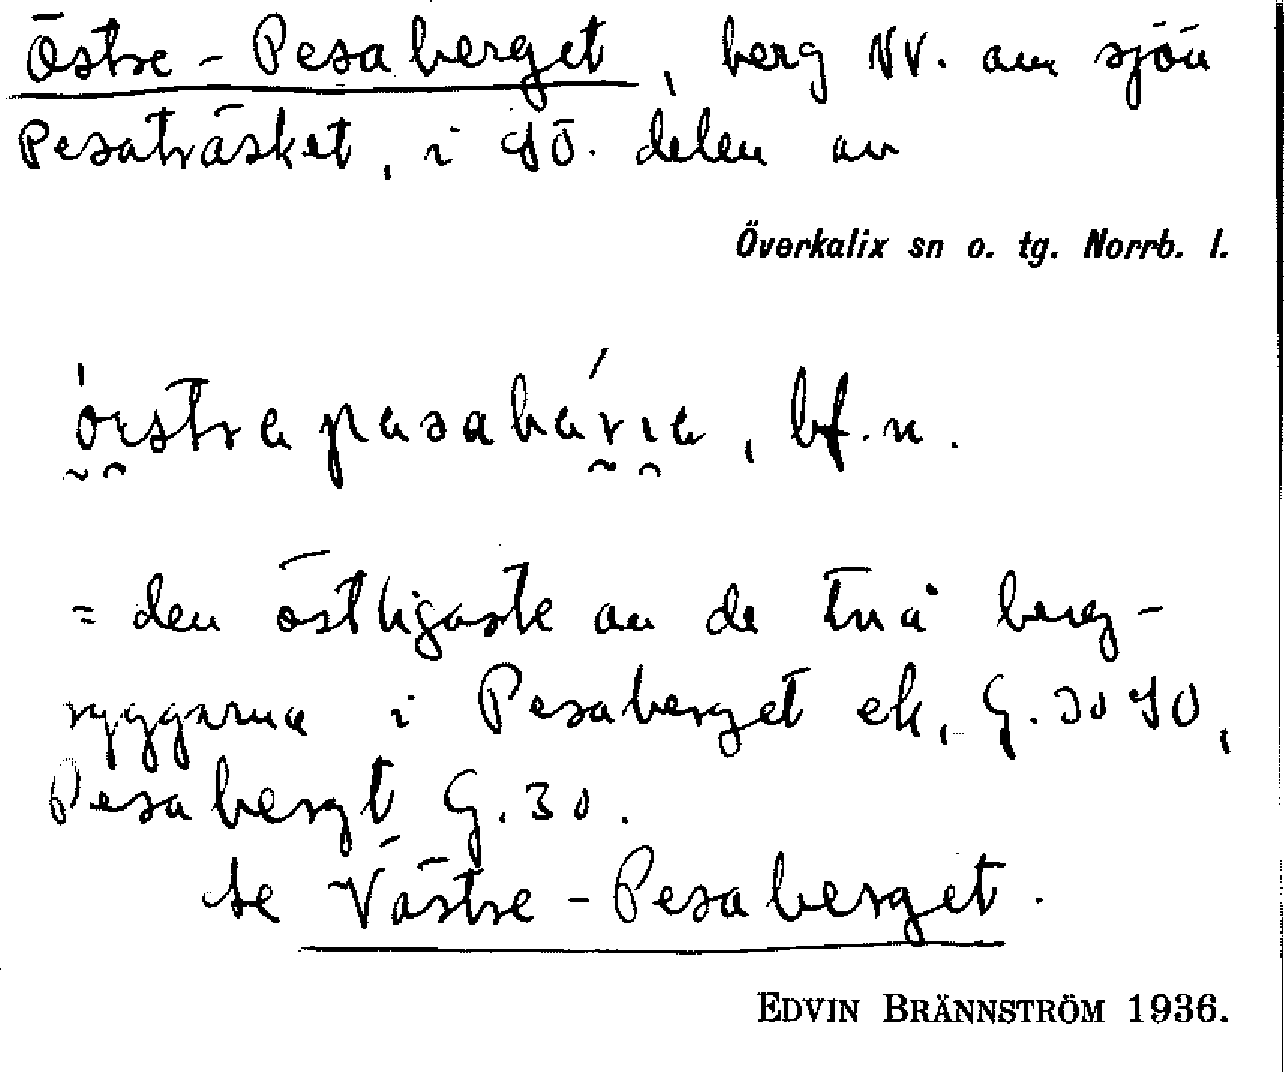 Östre-Pesaberget, berg NV. om sjön
Pesaträsket, i SÖ. delen av
Överkalix sn o. tg. Norrb. l.
, bf.n.
= den östligaste av de två berg-
ryggarna i Pesaberget ek., G. 30 SO,
Pesabergt G. 30.
se Västre-Pesaberget.
EDVIN BRÄNNSTRÖM 1936.